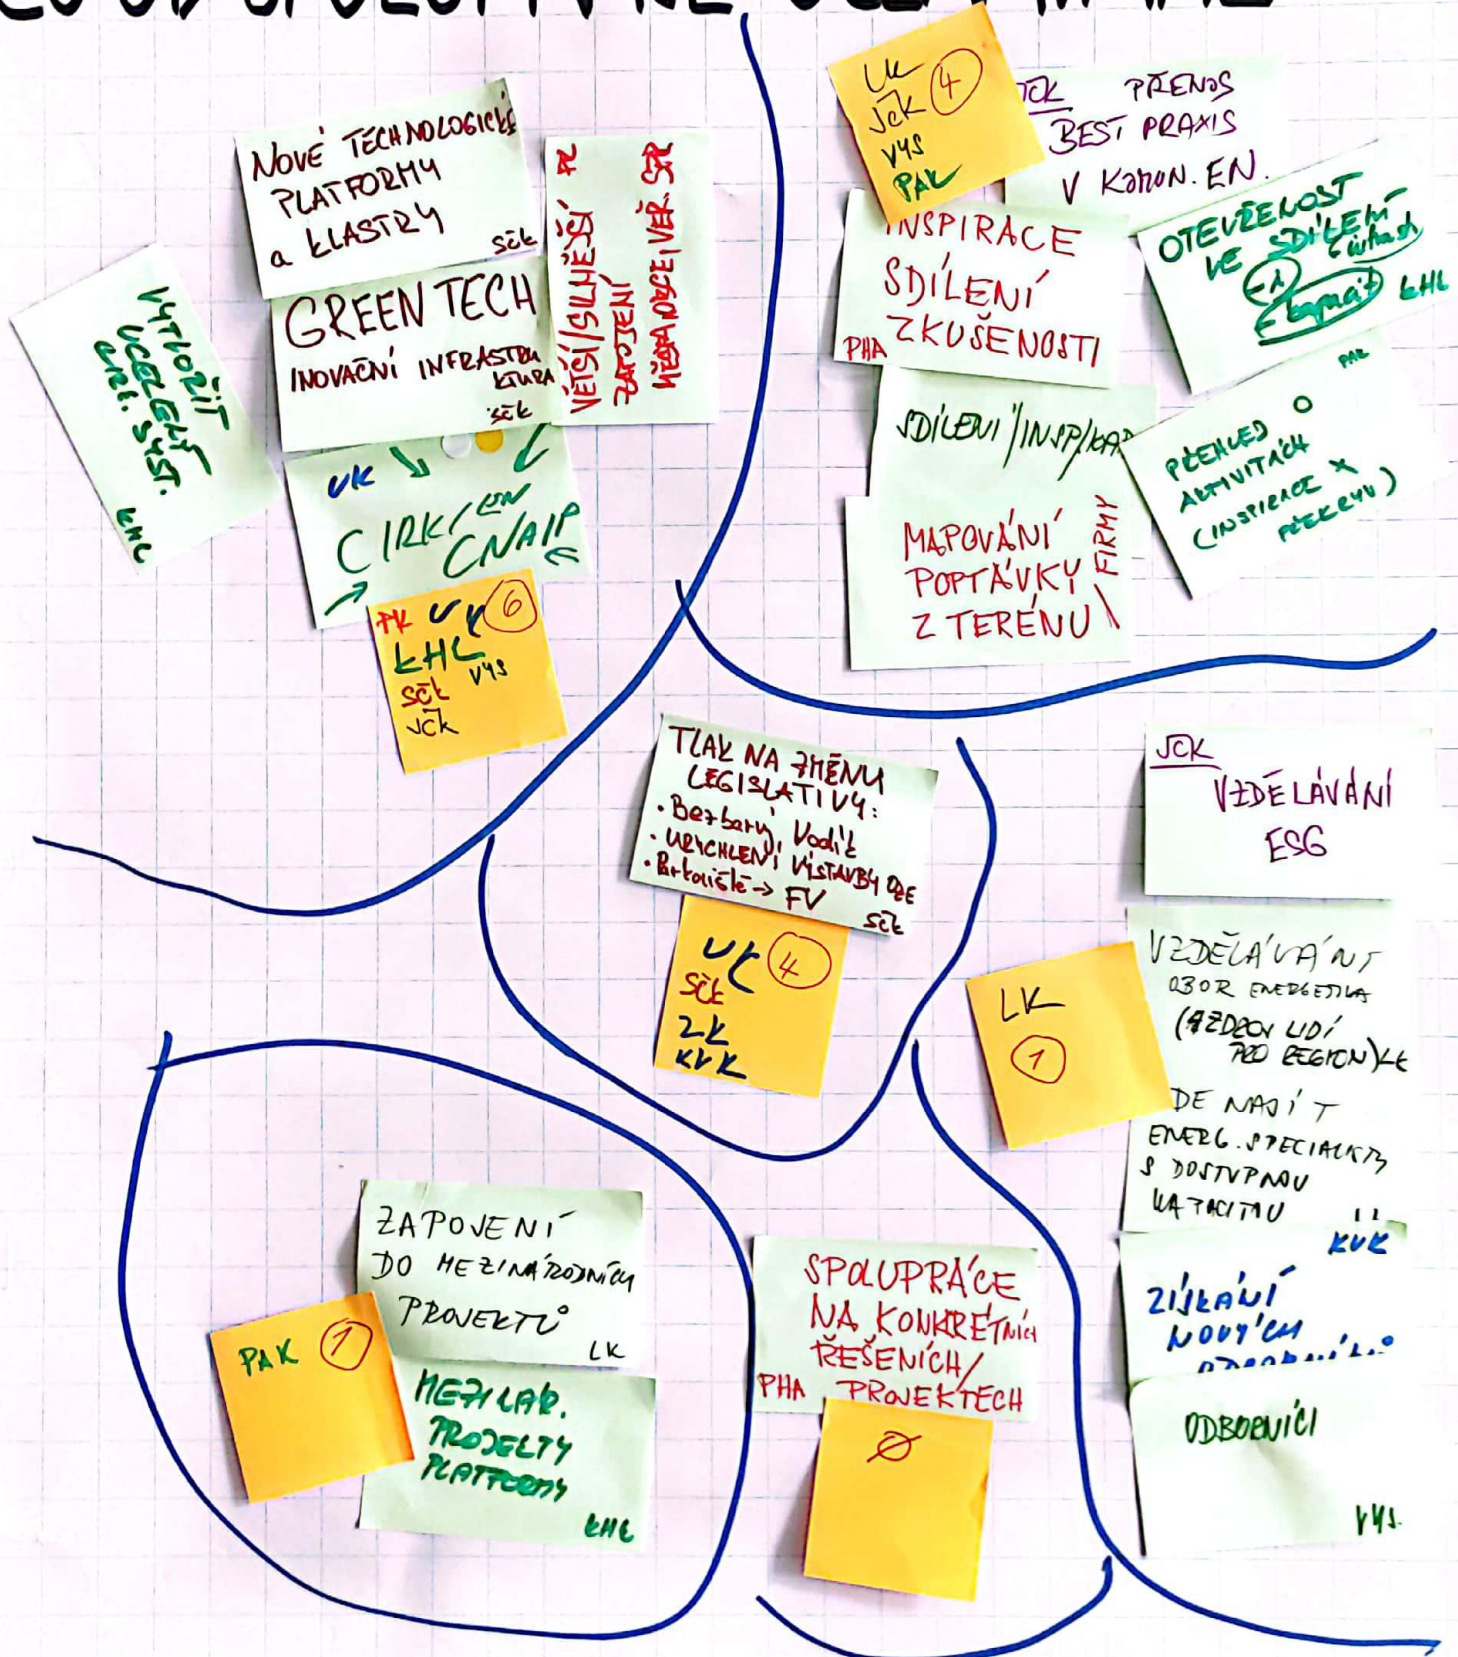 CO OD SPOLUPRÁCE OČEKÁVÁME
NOVÉ TECHNOLOGICKÉ
PLATFORMY
a KLASTRY
SČK
GREEN TECH
INOVAČNÍ INFRASTRU
KTURA
SČK
VĚTŠÍ/SILNĚJŠÍ PK
ZAPOJENÍ
VYTVOŘIT
UCELENÝ
SYST.
KHK
UK
CIRK/EN
CNAIP
PK UK 6
KHK
VYS
SČK
JČK
UK
JČK 4
VYS
PAK
JČK PŘENOS
BEST PRAXIS
V KOMUN. EN.
INSPIRACE
SDÍLENÍ
ZKUŠENOSTI
PHA
OTEVŘENOST
VE SDÍLENÍ
KHK
SDÍLENÍ/INSP/
PAK
PŘEHLED O
AKTIVITÁCH
(INSPIRACE X
PŘEKRYV)
MAPOVÁNÍ
POPTÁVKY
Z TERÉNU \ FIRMY
TLAK NA ZMĚNU
LEGISLATIVY:
• Bezbarvý Vodík
• URYCHLENÍ VÝSTAVBY OZE
• Parkoviště → FV
SČK
UK 4
SČK
ZK
KVK
JČK
VZDĚLÁVÁNÍ
ESG
VZDĚLÁVÁNÍ
OBOR ENERGETIKA
(ZDROJ LIDÍ
PRO REGION) LK
LK
1
DE NAJÍT
ENERG. SPECIALISTY
S DOSTUPNOU
KAPACITOU
KVK
ZÍSKÁNÍ
NOVÝCH
ODBORNÍCI
VYS.
ZAPOJENÍ
DO MEZINÁRODNÍCH
PROJEKTŮ
LK
PAK 1
MEZINÁR.
PROJEKTY
PLATFORMY
KHK
SPOLUPRÁCE
NA KONKRÉTNÍCH
ŘEŠENÍCH/
PHA PROJEKTECH
Ø